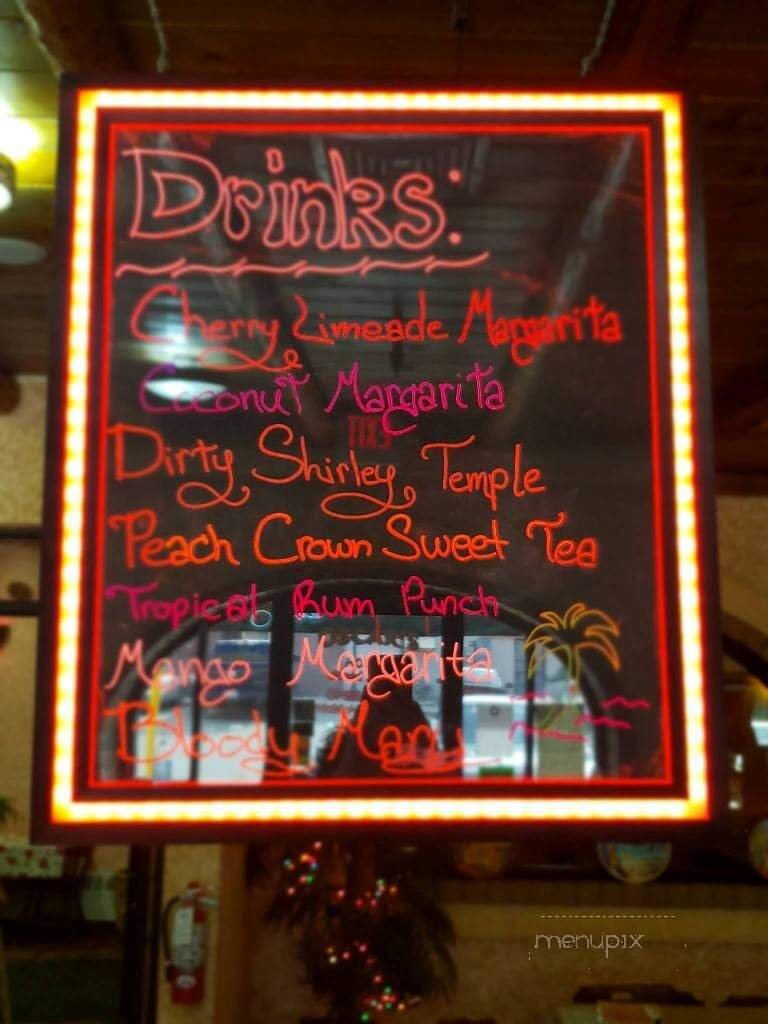 Drinks:
Cherry Limeade Margarita
Coconut Margarita
EXIT
Dirty Shirley Temple
Peach Crown Sweet Tea
Tropical Rum Punch
Mango Margarita
Bloody Mary
menupix